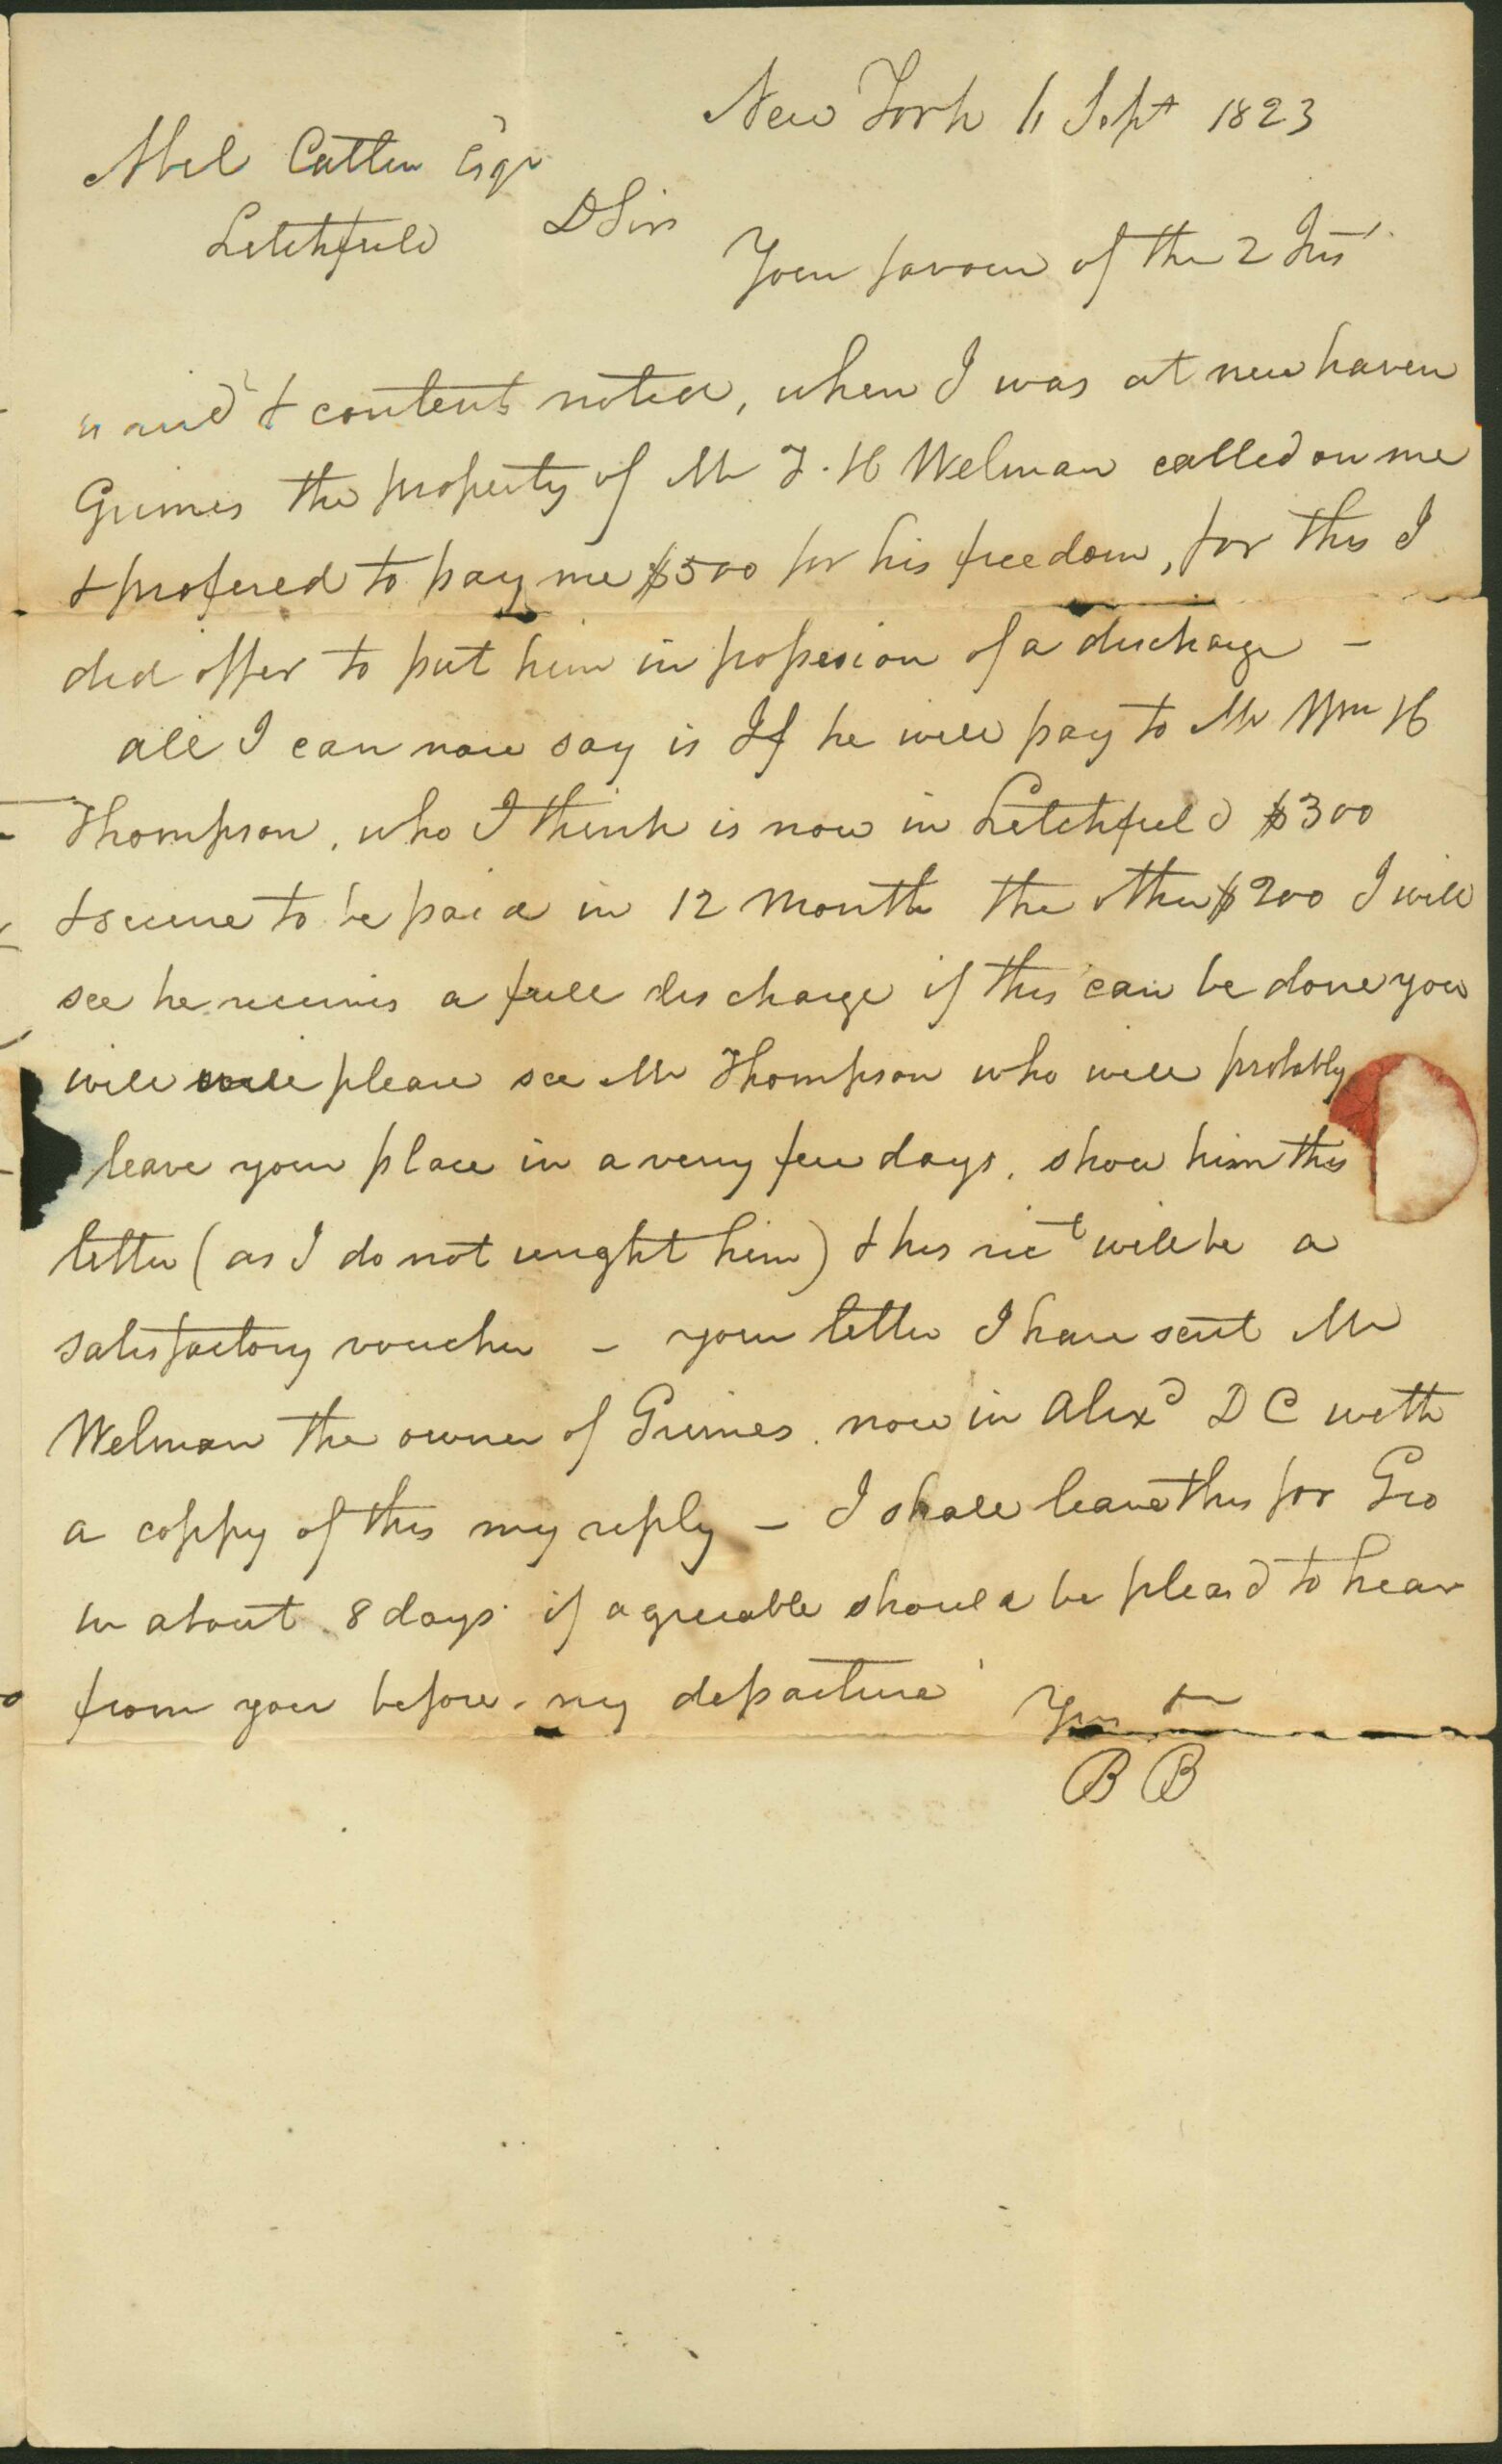 New York 11 Sept 1823
Abel Catlin Esqr
Litchfield D Sir
Your favour of the 2 Inst
is recd & contents noted, when I was at new haven
Grimes the property of Mr F. H Welman called on me
& profered to pay me $500 for his freedom, for this I
did offer to put him in possesion of a discharge –
all I can now say is If he will pay to Mr Wm H
Thompson, who I think is now in Litchfield $300
& secure to be paid in 12 Month the other $200 I will
see he receives a full discharge if this can be done you
will please see Mr Thompson who will probably
leave your place in a very few days, show him this
letter (as I do not wright him) & his rict will be a
satisfactory voucher – your letter I have sent Mr
Welman the owner of Grimes now in Alexd D C with
a coppy of this my reply – I shall leave this for Geo
in about 8 days if agreeable should be pleasd to hear
from you before my departure Yrs
B B